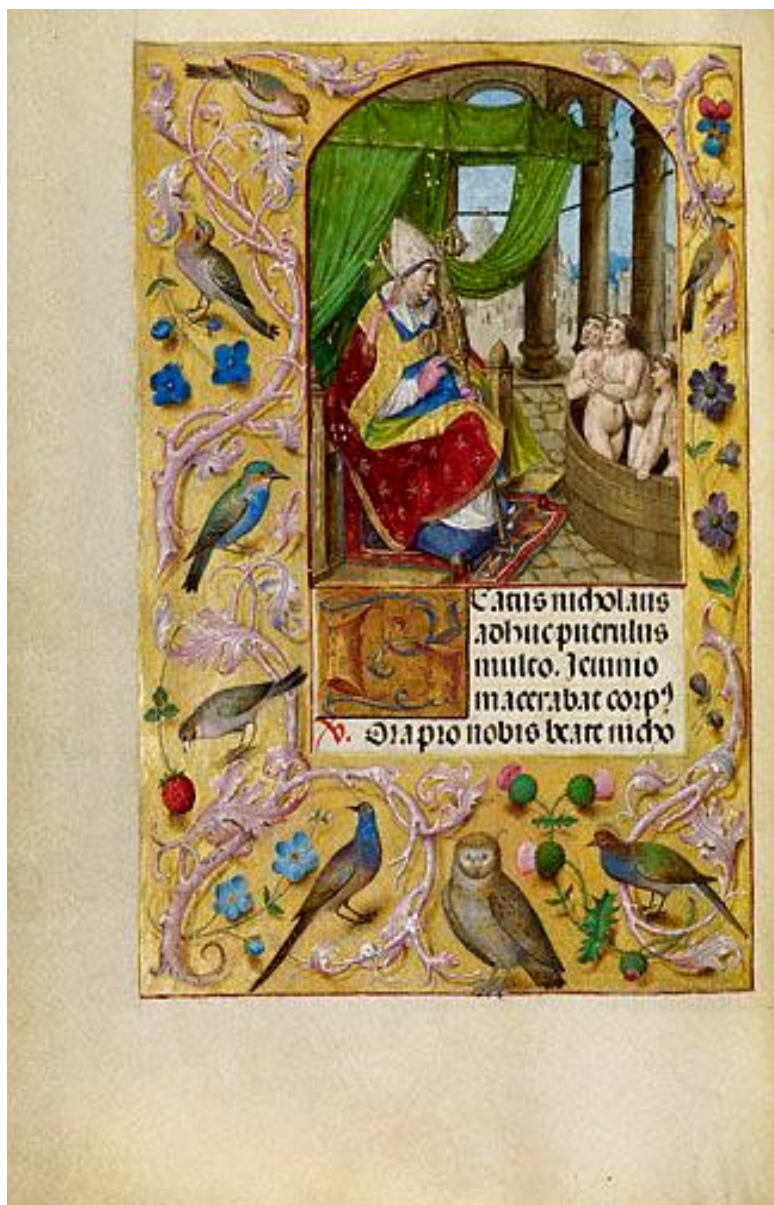 Beatus nicholaus
adhuc puerulus
multo. Jeiunio
macerabat corpꝰ
V. Ora pro nobis beate nicho